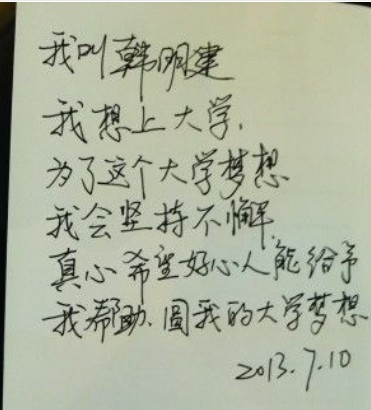 我叫韩明建
我想上大学,
为了这个大学梦想
我会坚持不懈
真心希望好心人能给予
我帮助、圆我的大学梦想
2013.7.10